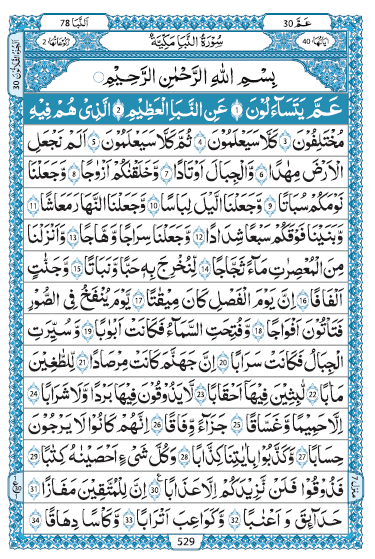 عَمَّ 30
اَلنَّبَا 78
اٰیَاتُهَا 40
سُوْرَةُ النَّبَاِ مَكِّیَّةٌ
رُكُوْعَاتُهَا 2
بِسْمِ اللّٰهِ الرَّحْمٰنِ الرَّحِیْمِ
عَمَّ یَتَسَآءَلُوْنَ 1 عَنِ النَّبَاِ الْعَظِیْمِ 2 الَّذِیْ هُمْ فِیْهِ
مُخْتَلِفُوْنَ 3 كَلَّا سَیَعْلَمُوْنَ 4 ثُمَّ كَلَّا سَیَعْلَمُوْنَ 5 اَلَمْ نَجْعَلِ
الْاَرْضَ مِهٰدًا 6 وَّ الْجِبَالَ اَوْتَادًا 7 وَّ خَلَقْنٰكُمْ اَزْوٰجًا 8 وَّ جَعَلْنَا
نَوْمَكُمْ سُبَاتًا 9 وَّ جَعَلْنَا الَّیْلَ لِبَاسًا 10 وَّ جَعَلْنَا النَّهَارَ مَعَاشًا 11
وَّ بَنَیْنَا فَوْقَكُمْ سَبْعًا شِدَادًا 12 وَّ جَعَلْنَا سِرَاجًا وَّهَّاجًا 13 وَّ اَنْزَلْنَا
مِنَ الْمُعْصِرٰتِ مَآءً ثَجَّاجًا 14 لِّنُخْرِجَ بِهٖ حَبًّا وَّ نَبَاتًا 15 وَّ جَنّٰتٍ
اَلْفَافًا 16 اِنَّ یَوْمَ الْفَصْلِ كَانَ مِیْقٰتًا 17 یَّوْمَ یُنْفَخُ فِی الصُّوْرِ
فَتَاْتُوْنَ اَفْوَاجًا 18 وَّ فُتِحَتِ السَّمَآءُ فَكَانَتْ اَبْوٰبًا 19 وَّ سُیِّرَتِ
الْجِبَالُ فَكَانَتْ سَرَابًا 20 اِنَّ جَهَنَّمَ كَانَتْ مِرْصَادًا 21 لِّلطّٰغِیْنَ
مَاٰبًا 22 لّٰبِثِیْنَ فِیْهَاۤ اَحْقَابًا 23 لَا یَذُوْقُوْنَ فِیْهَا بَرْدًا وَّ لَا شَرَابًا 24
اِلَّا حَمِیْمًا وَّ غَسَّاقًا 25 جَزَآءً وِّفَاقًا 26 اِنَّهُمْ كَانُوْا لَا یَرْجُوْنَ
حِسَابًا 27 وَّ كَذَّبُوْا بِاٰیٰتِنَا كِذَّابًا 28 وَ كُلَّ شَیْءٍ اَحْصَیْنٰهُ كِتٰبًا 29
فَذُوْقُوْا فَلَنْ نَّزِیْدَكُمْ اِلَّا عَذَابًا 30 اِنَّ لِلْمُتَّقِیْنَ مَفَازًا 31
حَدَآئِقَ وَ اَعْنٰبًا 32 وَّ كَوَاعِبَ اَتْرَابًا 33 وَّ كَاْسًا دِهَاقًا 34
529